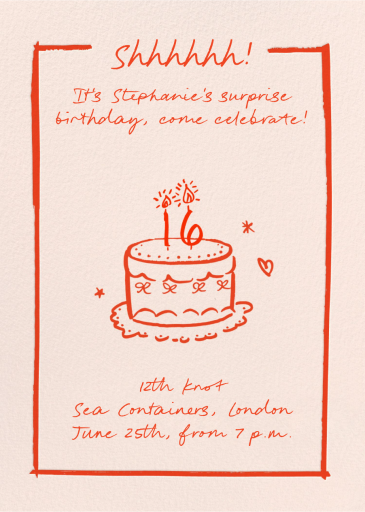 Shhhhhh!
It's Stephanie's surprise
birthday, come celebrate!
16
12th Knot
Sea Containers, London
June 25th, from 7 p.m.